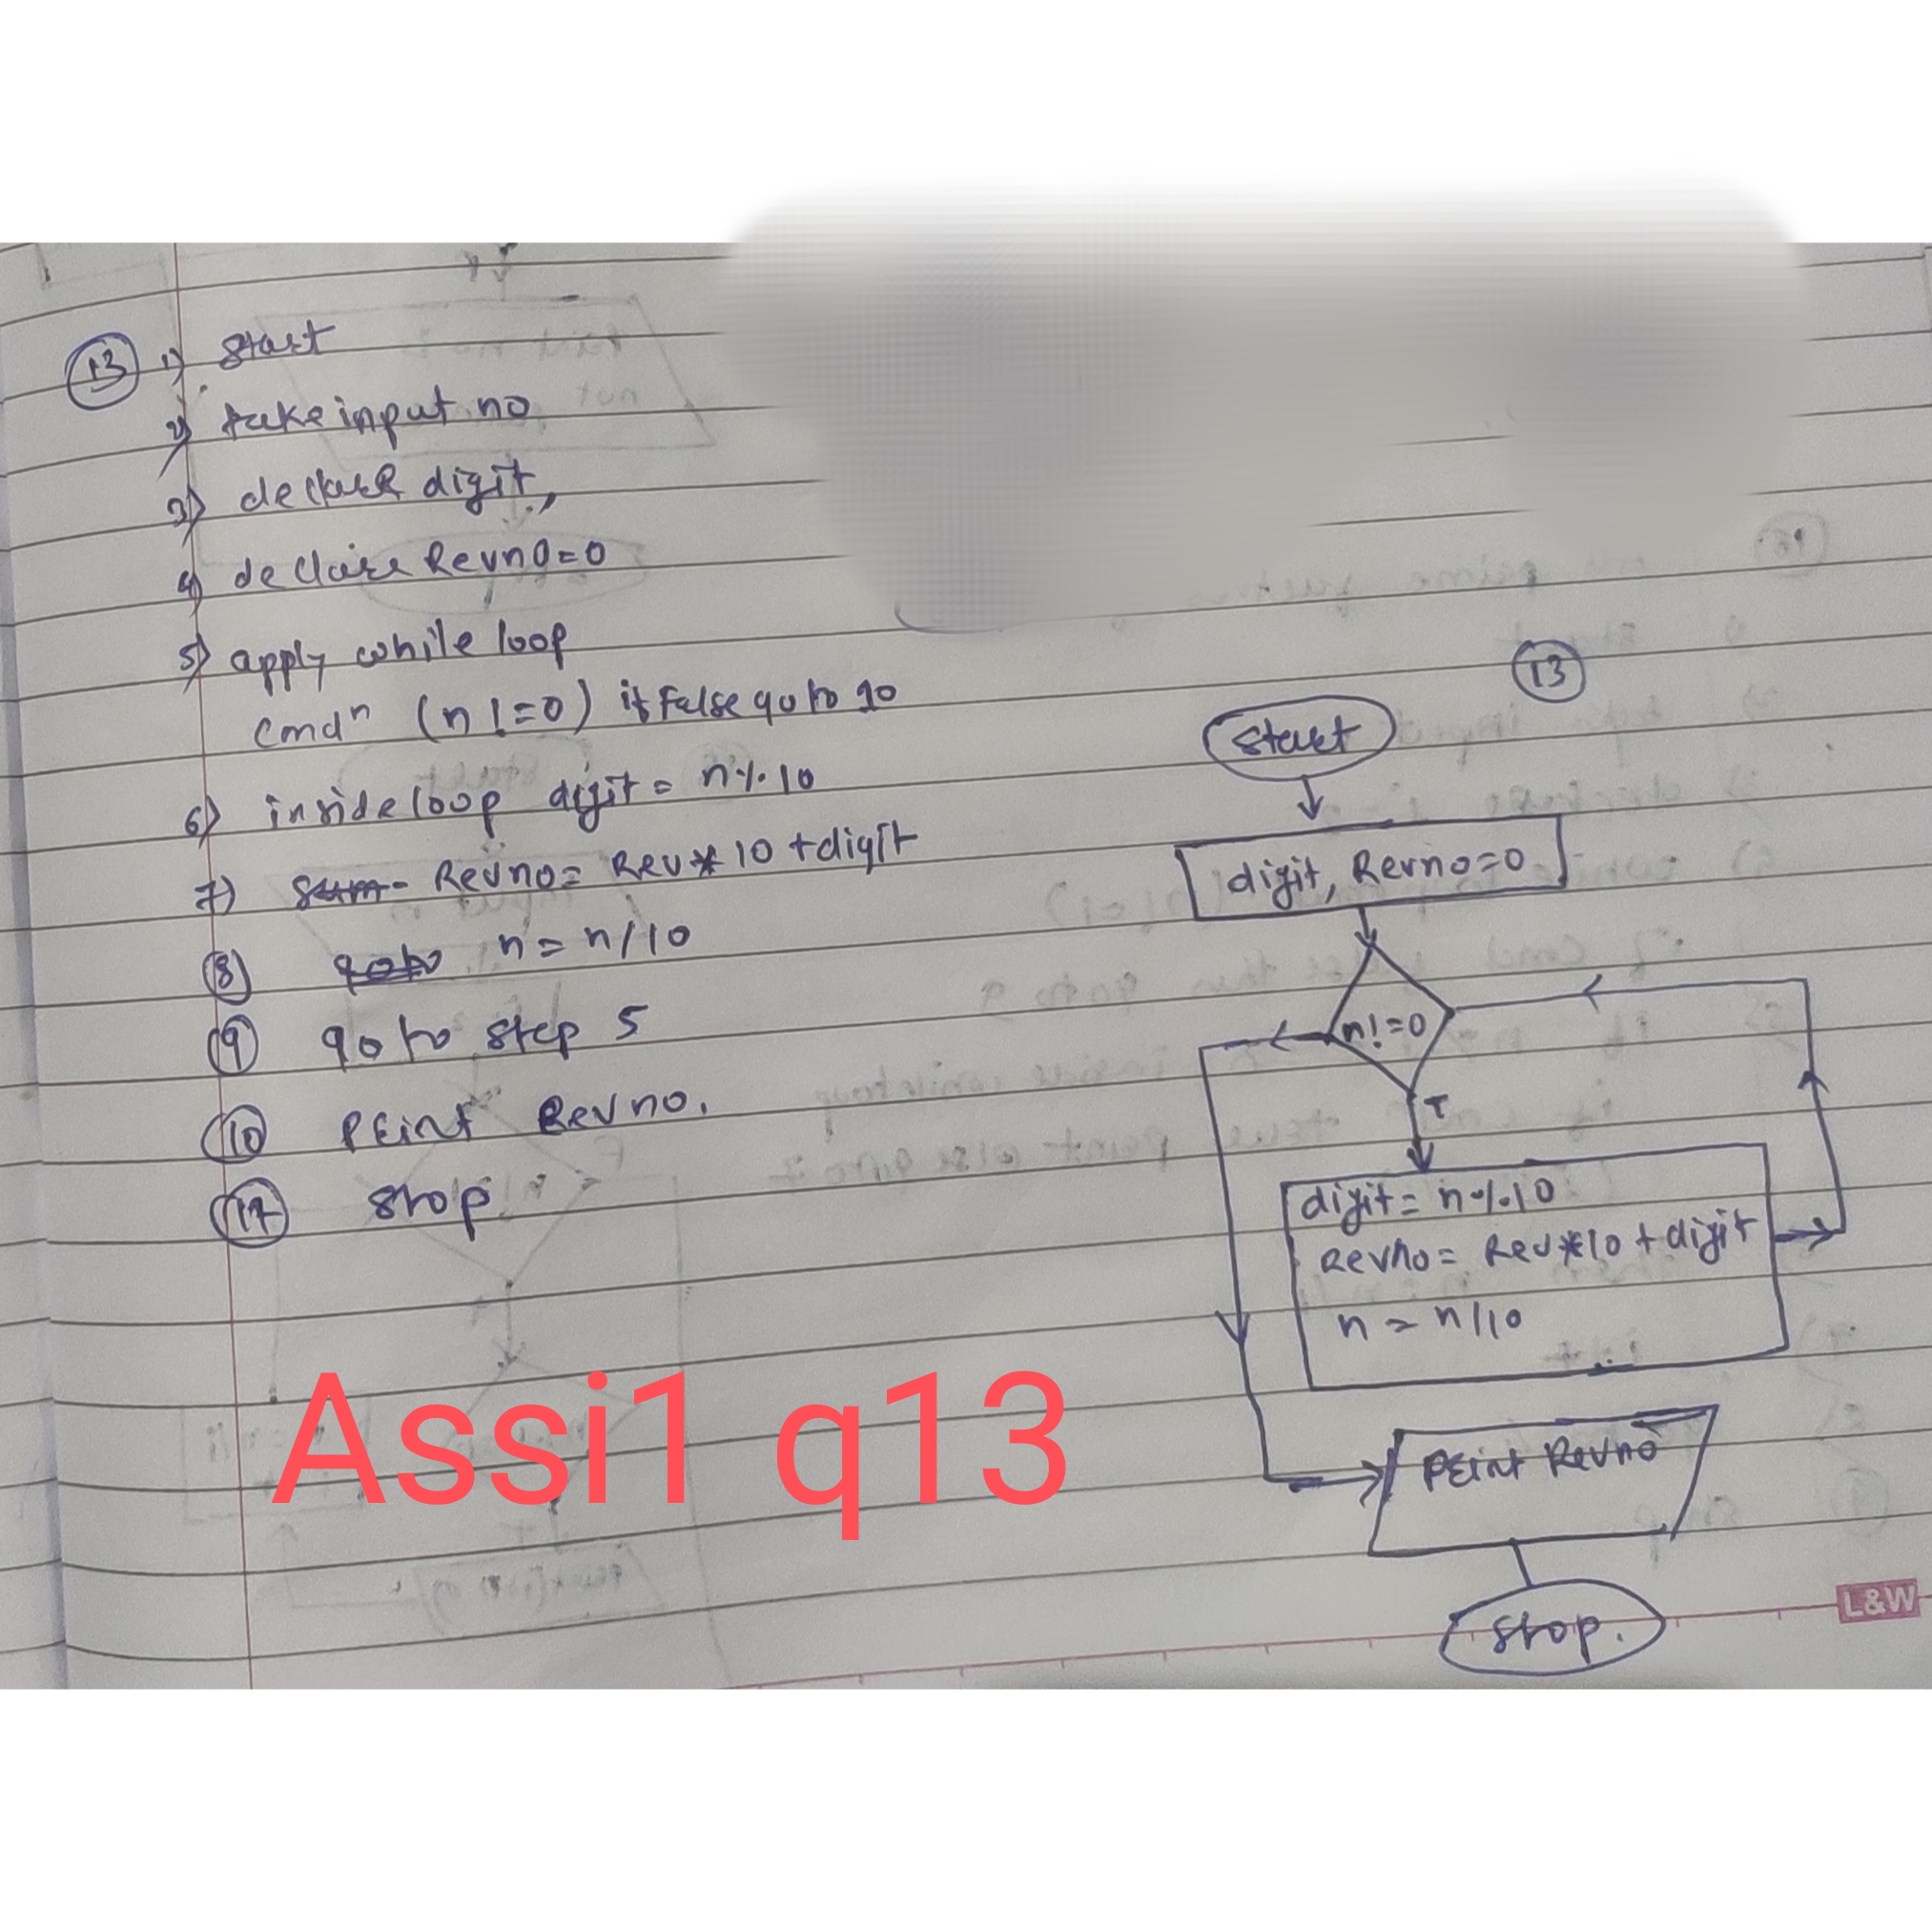 13 1) Start
2) take input no
3) declare digit,
4) declare Revno=0
5) apply while loop
Cmdⁿ (n!=0) if False go to 10
6) inside loop digit = n%10
7) Sum= Revno= Rev*10+digit
8 goto n=n/10
9 go to step 5
10 Print Revno.
Stop
13
Start
digit, Revno=0
n!=0
T
digit= n%10
Revno= Rev*10+digit
n=n/10
Print Revno
Stop.
Assi1 q13
L&W